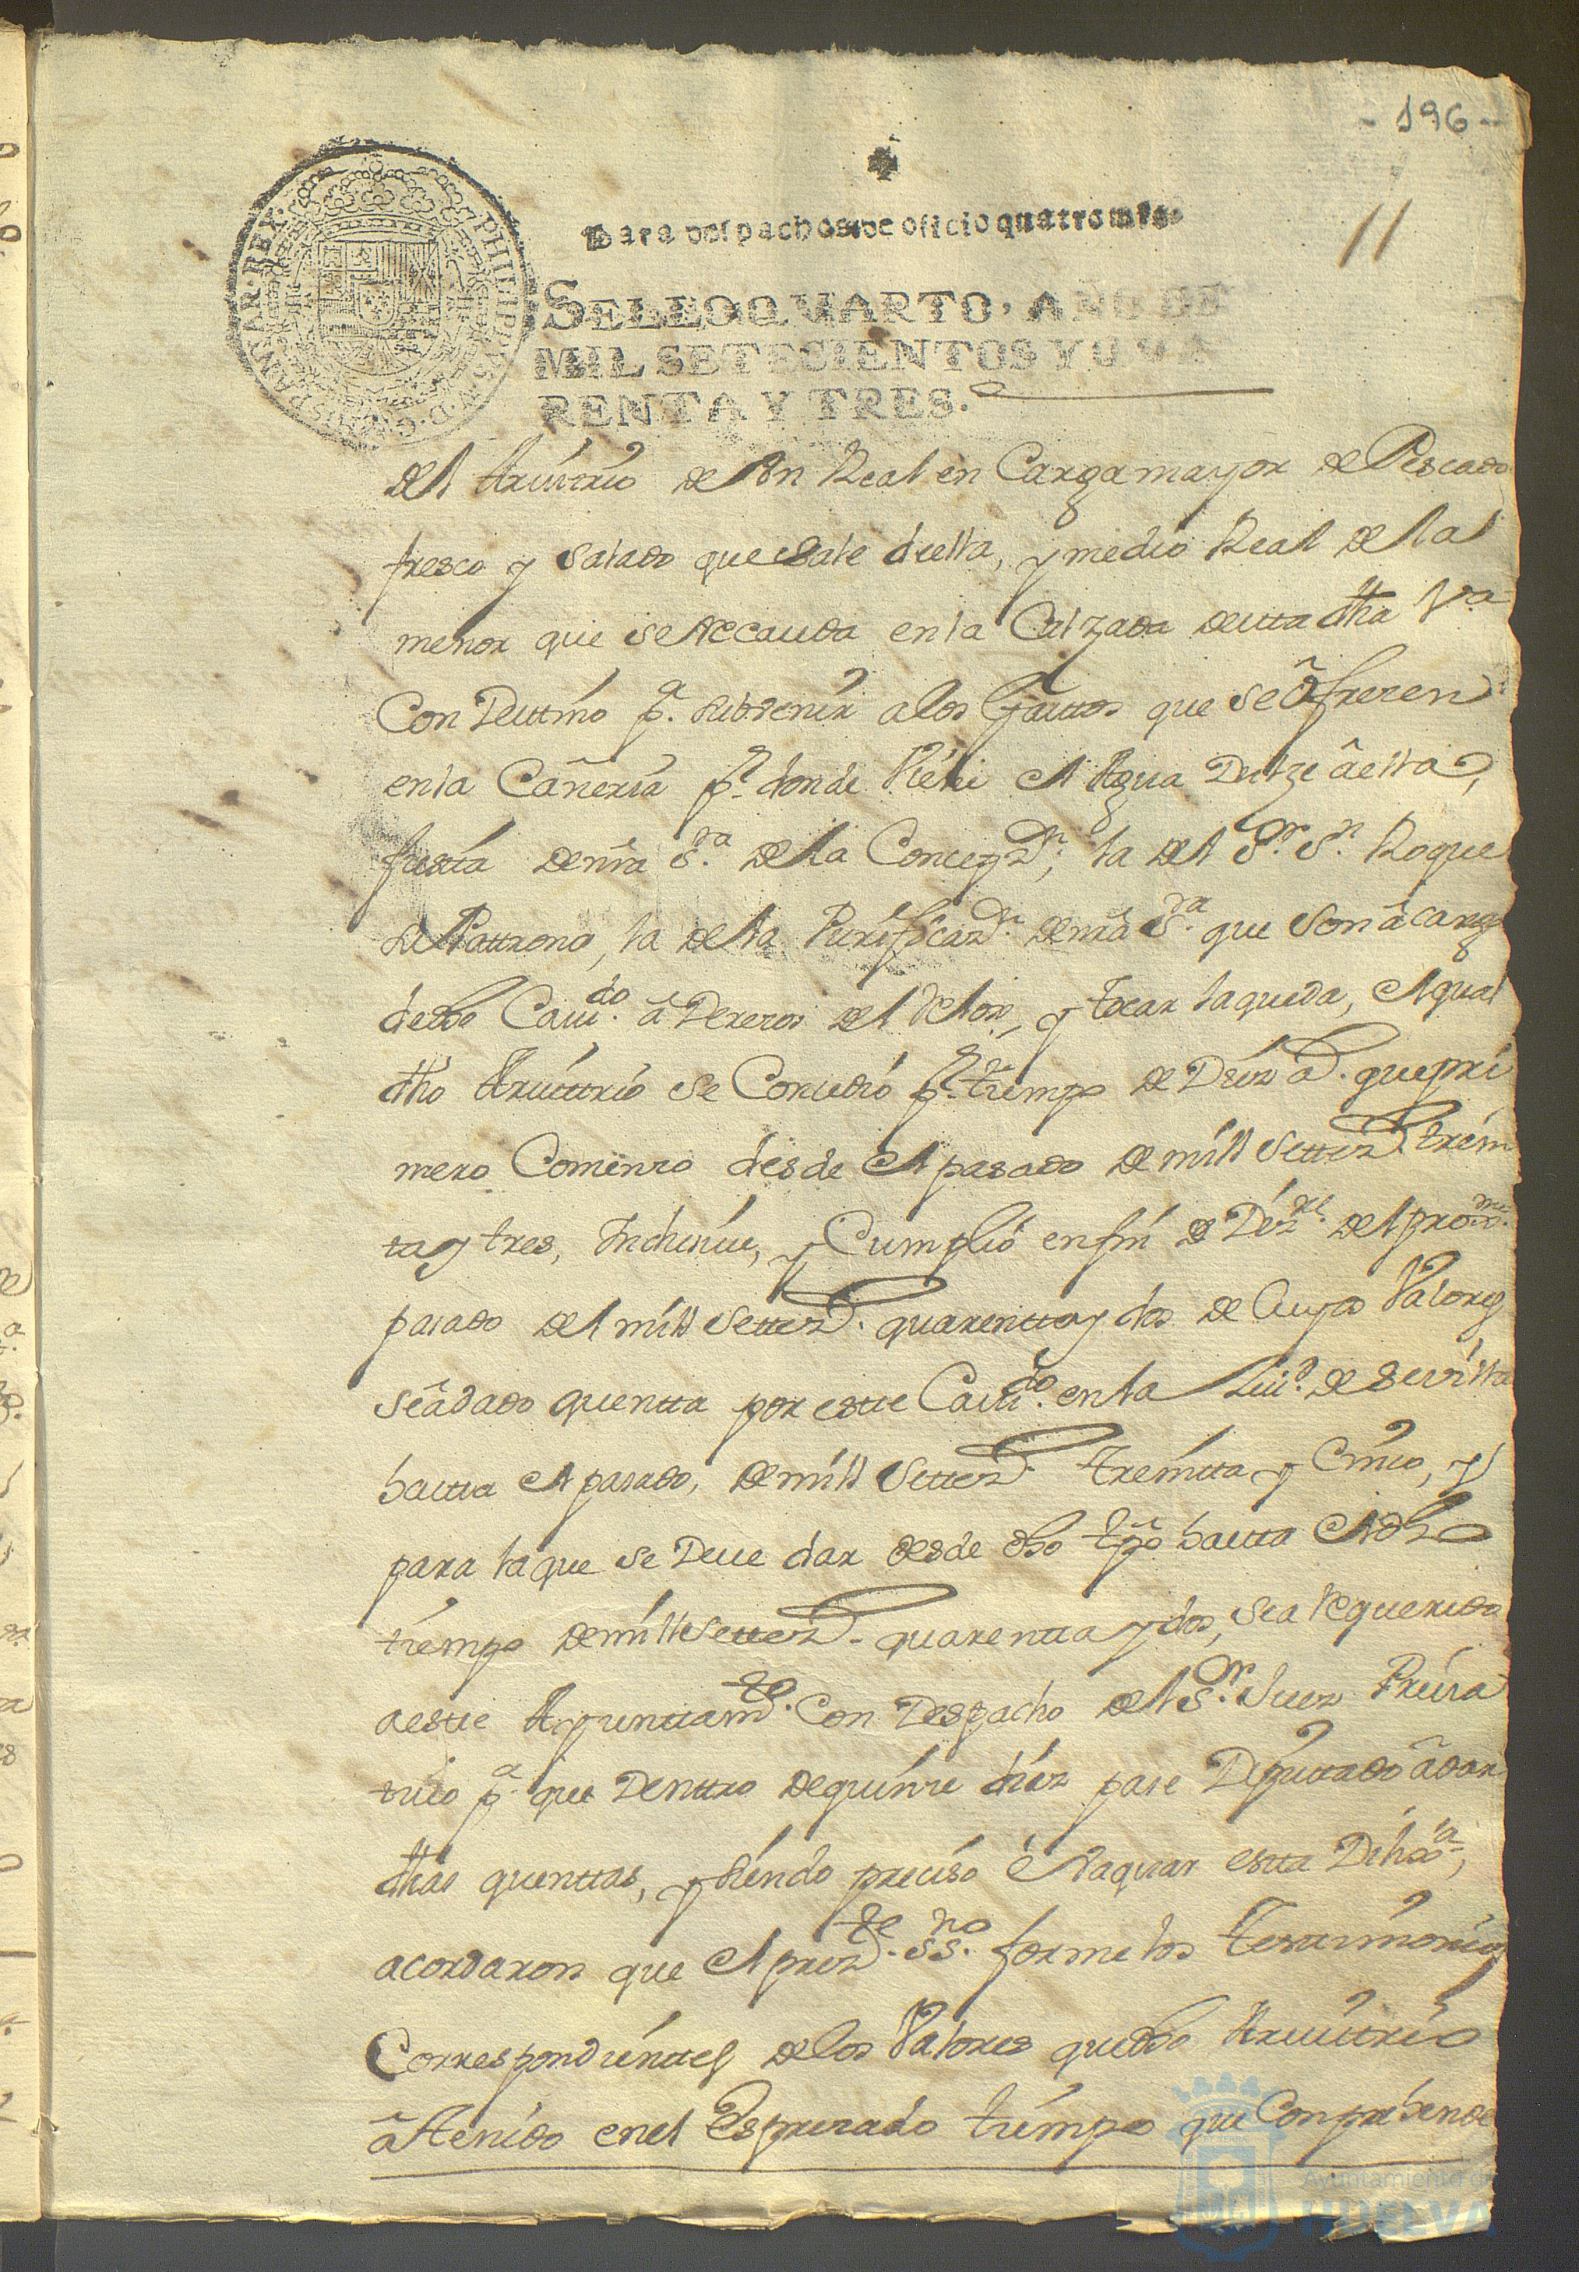 - 196 -
11
Para despachos de oficio quatro mrs.
PHILIPPVS.V.D.G. HISPANIAR.REX.
SELLO QVARTO, AÑO DE
MIL SETECIENTOS Y QVA
RENTA Y TRES.
del Arvitrio de Un Real en Carga mayor de Pescado
fresco y salado que sale della, y medio Real de la
menor que se Recauda en la Calzada de esta dha Va
Con Destino pa. subvenir a los Gastos que se ofrezen
en la Cañeria pr. donde viene el Agua Dulze a ella,
fiesta de nra Sra. de la Concepzn, la del Sr. Sn. Roque
su Pattrono, la de la Purificazn. de nra Sra. que son a cargo
de dho Cavdo. aderezos del Relox, y tocar la queda, el qual
dho Arvittrio se Conzedio pr. tiempo de Diez as. que pri
mero Comenzo desde el pasado de mill settezs. trein
ta y tres, Inclusive, y Cumplio en fin de Dize. del proxmo.
pasado de mill settezs. quarentta y dos de Cuyos Valores
se a dado quentta por este Cavdo. en la Ciud. de sevilla
hasta el pasado, de mill settezs. treintta y Cinco, y
para la que se deve dar desde dho tpo hasta el dho
tiempo de mill settezs. quarentta y dos, se a Requerido
a este Ayunttamto. Con Despacho del Sr. Juez Priva
tivo pa. que Dentro de quinze dias pase Diputtado a dar
dhas quenttas, y siendo preciso evaquar esta Diliga.,
acordaron que el preste. ssno. forme los Testimonios
Correspondientes de los Valores que dho Arvittrio
a tenido en el Espresado tiempo que Conprehende
Ayuntamiento de
HUELVA